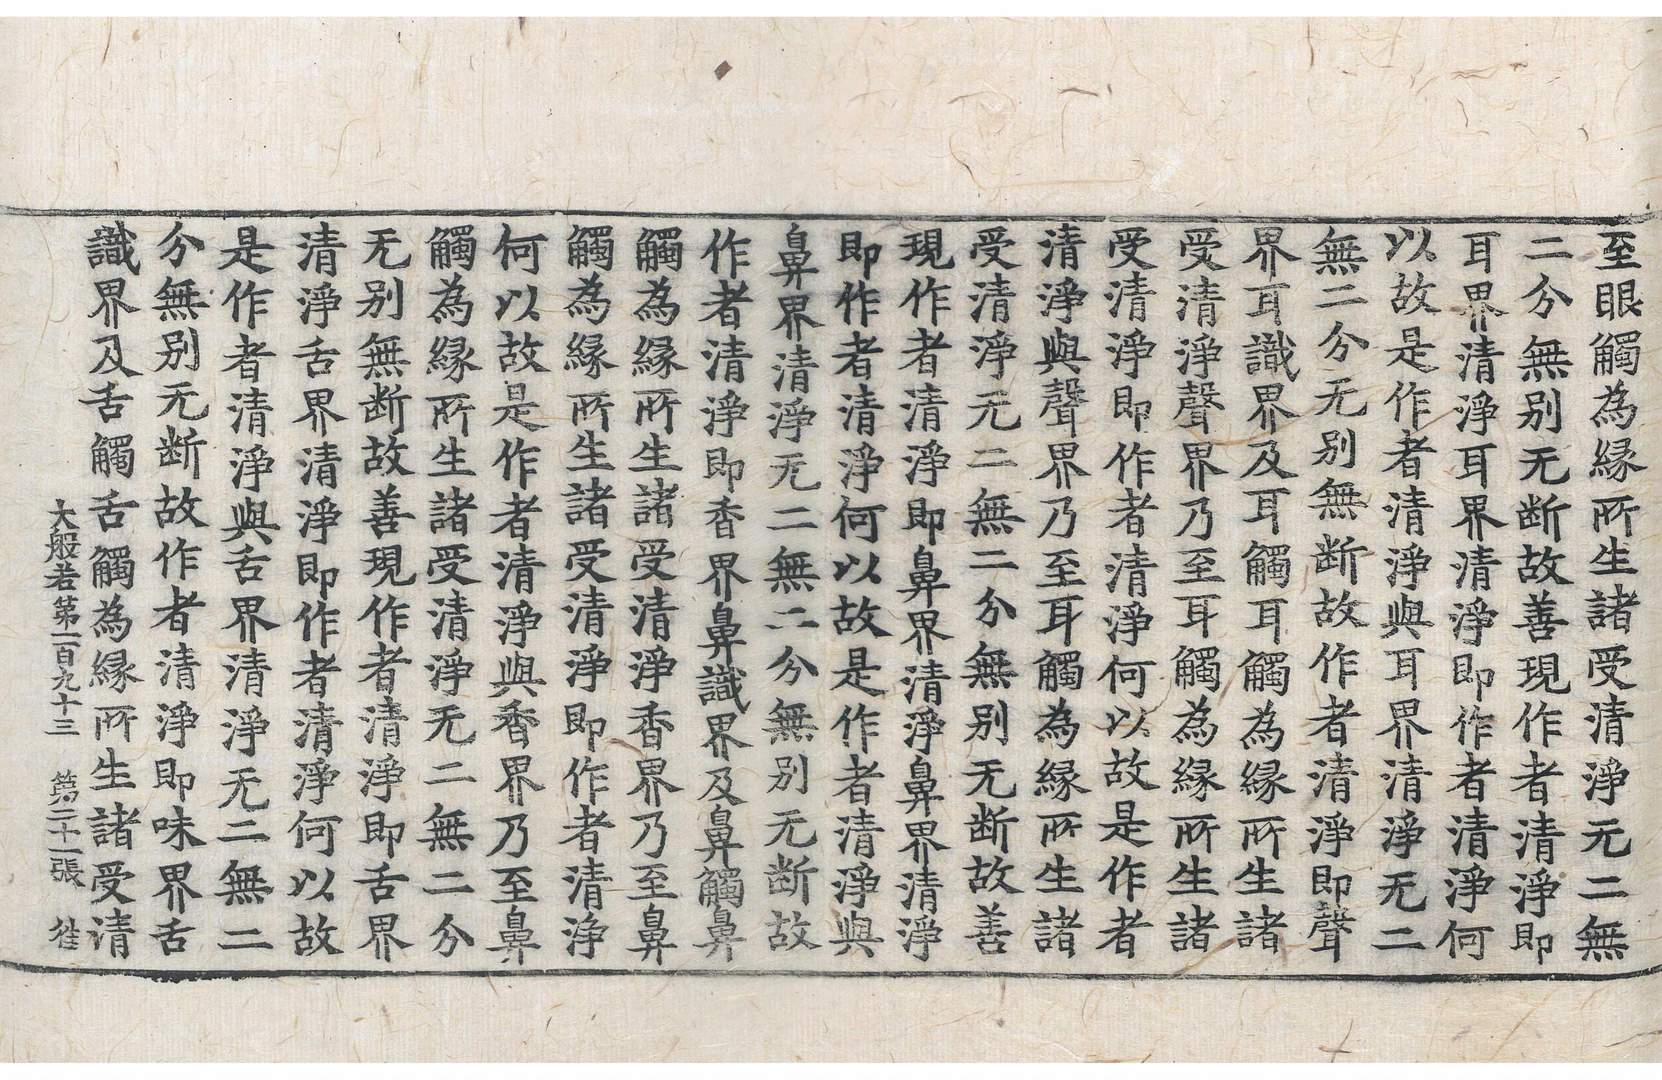 至眼觸為縁所生諸受清淨无二無
二分無别无断故善現作者清淨即
耳界清淨耳界清淨即作者清淨何
以故是作者清淨與耳界清淨无二
無二分无别無断故作者清淨即聲
界耳識界及耳觸耳觸為縁所生諸
受清淨聲界乃至耳觸為縁所生諸
受清淨即作者清淨何以故是作者
清淨與聲界乃至耳觸為縁所生諸
受清淨无二無二分無别无断故善
現作者清淨即鼻界清淨鼻界清淨
即作者清淨何以故是作者清淨與
鼻界清淨无二無二分無别无断故
作者清淨即香界鼻識界及鼻觸鼻
觸為縁所生諸受清淨香界乃至鼻
觸為縁所生諸受清淨即作者清淨
何以故是作者清淨與香界乃至鼻
觸為縁所生諸受清淨无二無二分
无别無断故善現作者清淨即舌界
清淨舌界清淨即作者清淨何以故
是作者清淨與舌界清淨无二無二
分無别无断故作者清淨即味界舌
識界及舌觸舌觸為縁所生諸受清
大般若第二百九十三 第二十一張